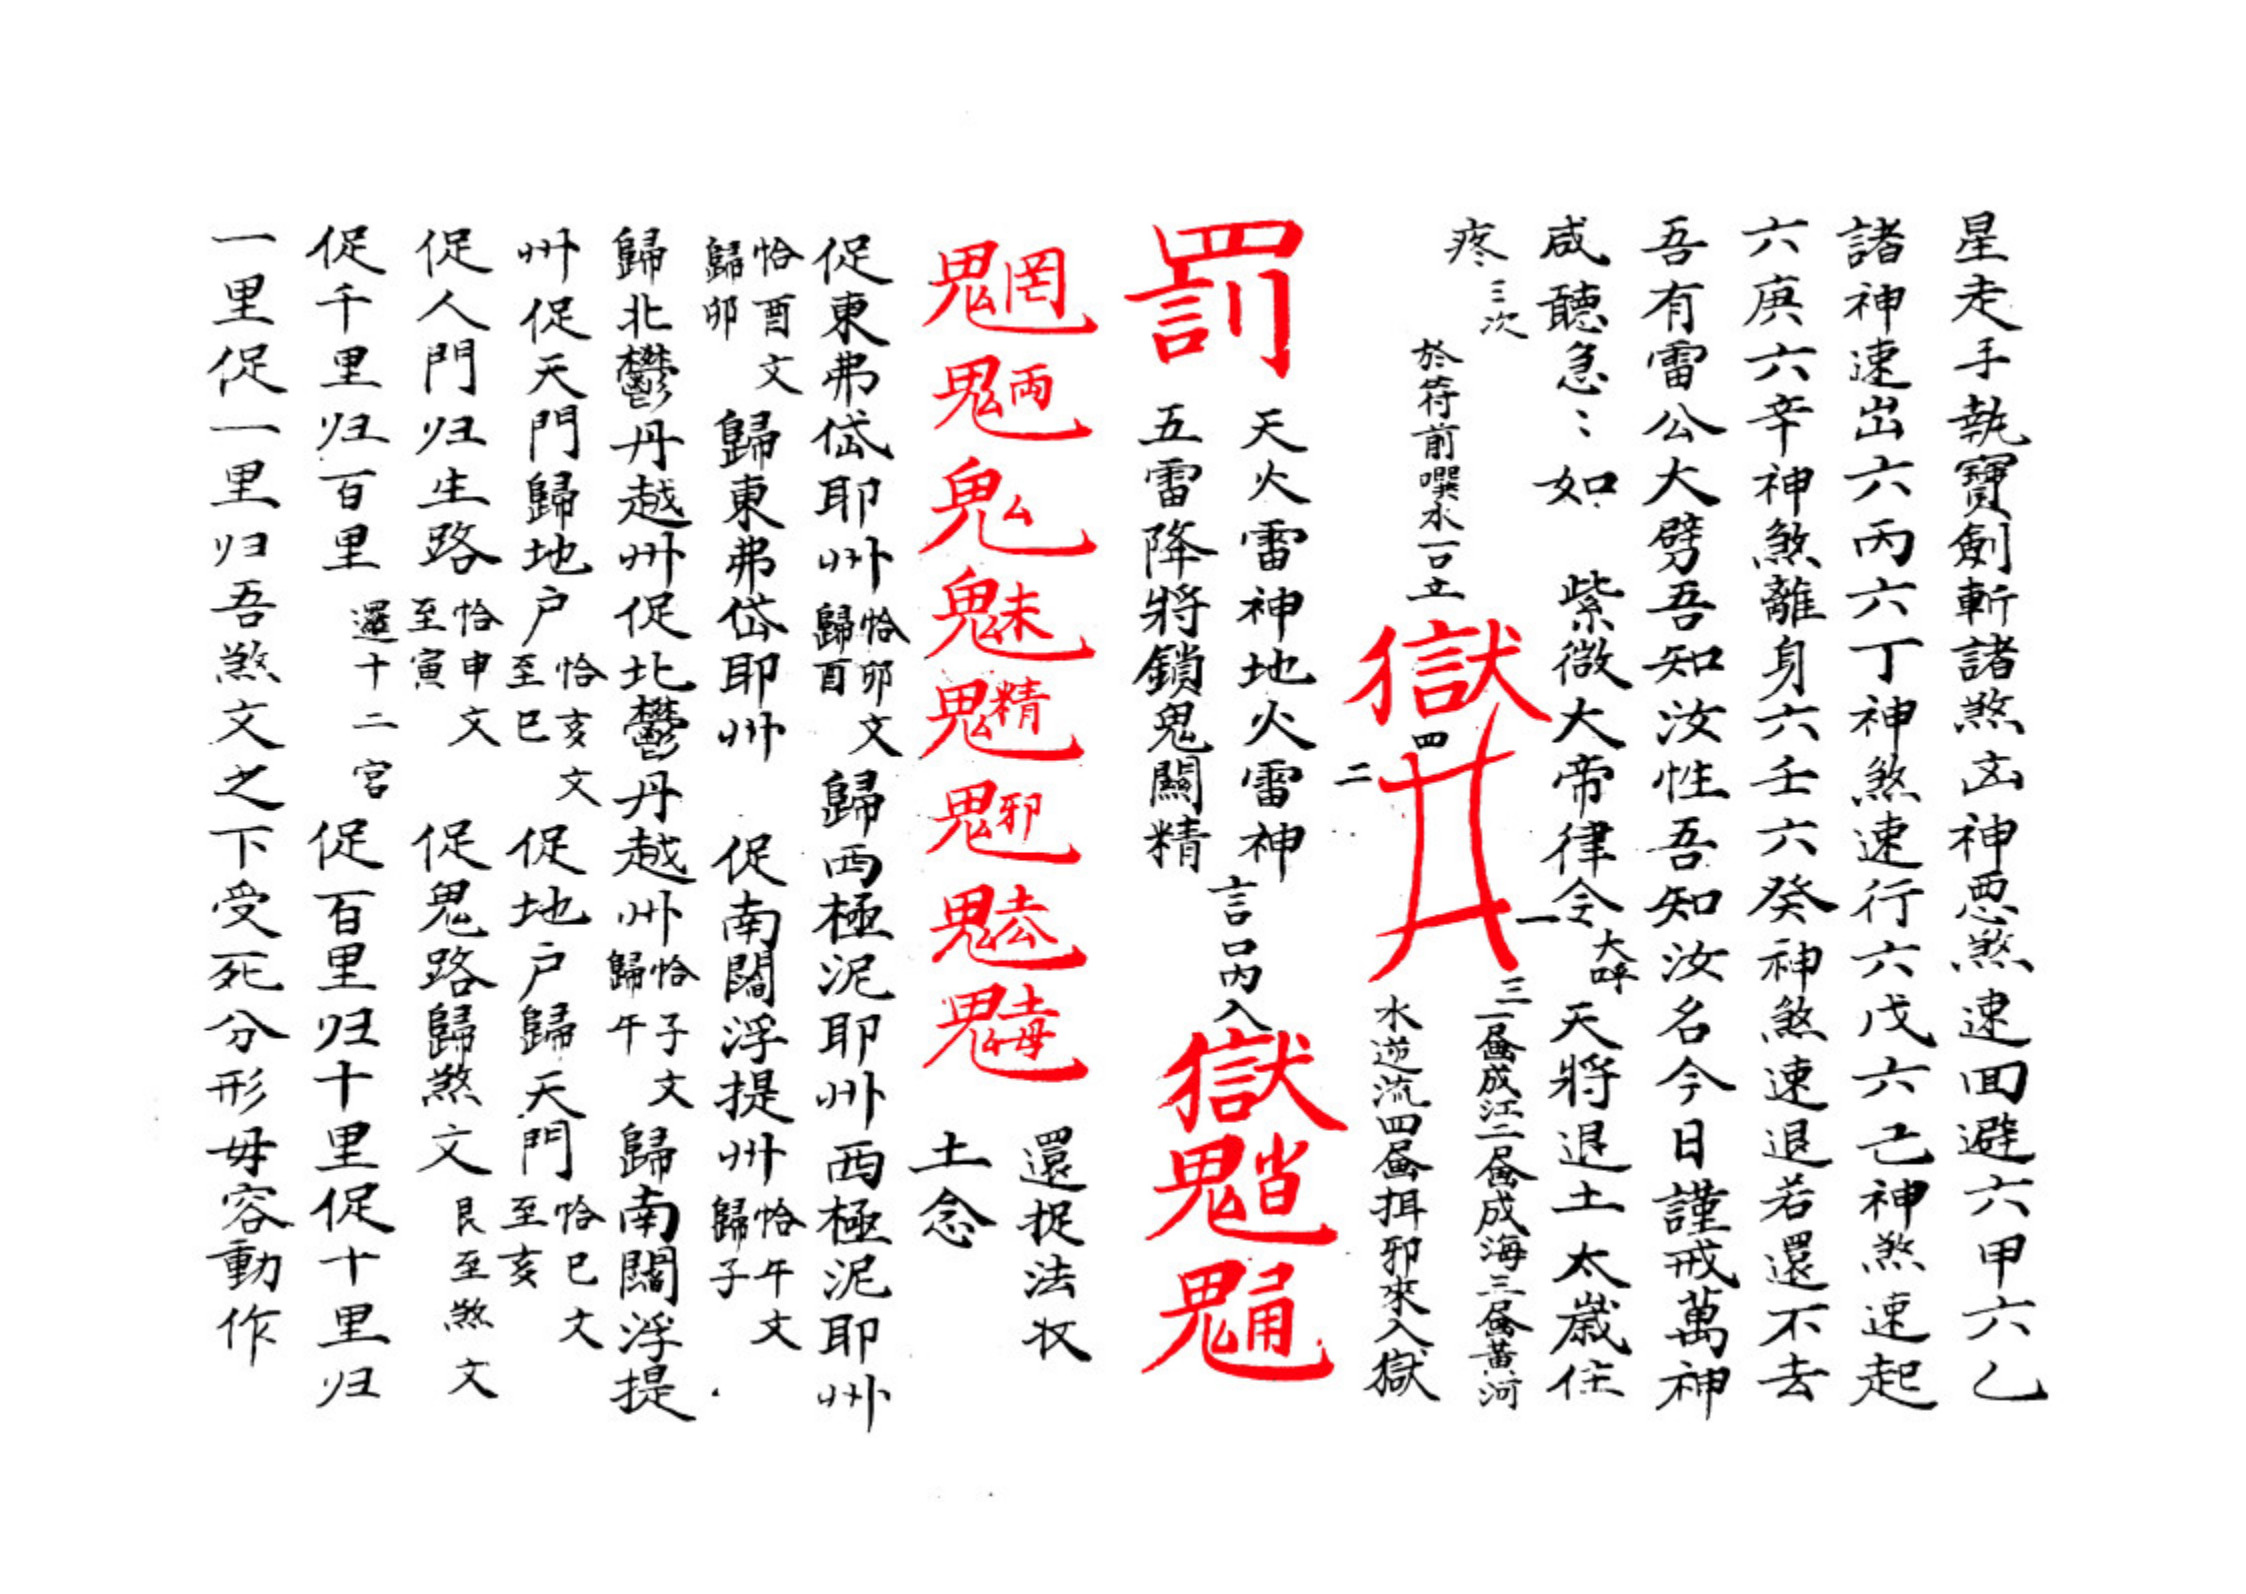 星走手執寶劍斬諸煞凶神惡煞速回避六甲六乙
諸神速出六丙六丁神煞速行六戊六己神煞速起
六庚六辛神煞離身六壬六癸神煞速退若還不去
吾有雷公大劈吾知汝性吾知汝名今日謹戒萬神
咸聽急〻如 紫微大帝律令 大呼 天將退土太歲住
疼 三次
於符前噀水一口立
獄
四
二
一
三
一畫成江二畫成海三畫黃河
水逆流四畫揖邪來入獄
罰
天火雷神地火雷神
五雷降將鎖鬼關精
言口內入
獄
還捉法收
土念
促東弗岱耶州 恰卯文歸酉 歸西極泥耶州 西極泥耶州
恰酉文歸卯 歸東弗岱耶州 促南閻浮提州 恰午文歸子
歸北鬱丹越州促北鬱丹越州 恰子文歸午 歸南閻浮提
州促天門歸地户 恰亥文至巳 促地户歸天門 恰巳文至亥
促人門归生路 恰申文至寅 促鬼路歸煞文 艮至煞文
促千里归百里 還十二宮 促百里归十里促十里归
一里促一里归吾煞文之下受死分形毋容動作